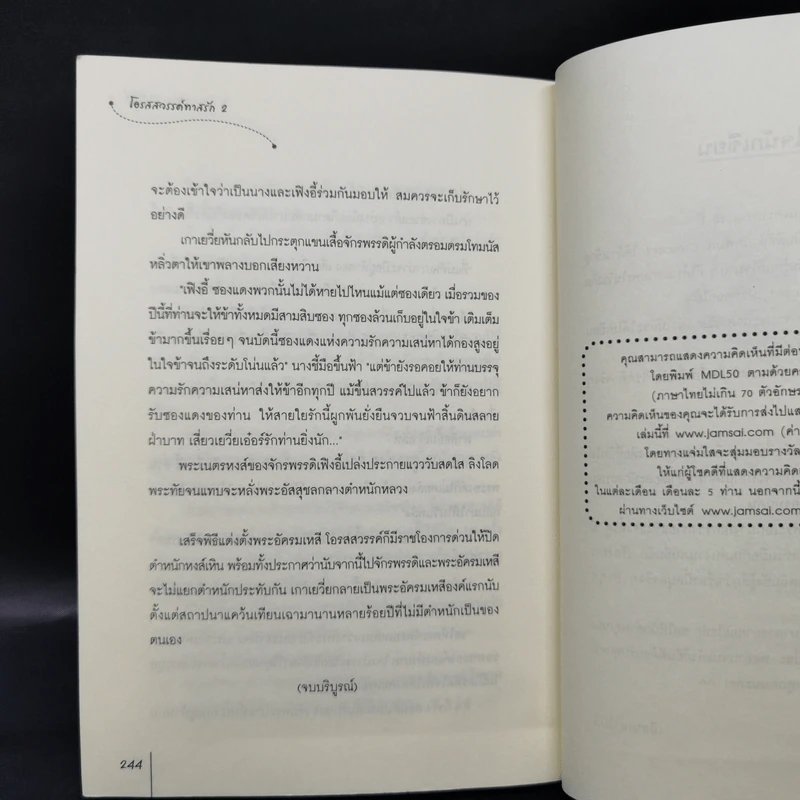 โอรสสวรรค์ทาสรัก 2
จะต้องเข้าใจว่าเป็นนางและเฟิงอี้ร่วมกันมอบให้ สมควรจะเก็บรักษาไว้
อย่างดี
เกาเยวี่ยหันกลับไปกระตุกแขนเสื้อจักรพรรดิผู้กำลังตรอมตรมโทมนัส
หลิ่วตาให้เขาพลางบอกเสียงหวาน
"เฟิงอี้ ซองแดงพวกนั้นไม่ได้หายไปไหนแม้แต่ซองเดียว เมื่อรวมของ
ปีนี้ที่ท่านจะให้ข้าทั้งหมดมีสามสิบซอง ทุกซองล้วนเก็บอยู่ในใจข้า เติมเต็ม
ข้ามากขึ้นเรื่อยๆ จนบัดนี้ซองแดงแห่งความรักความเสน่หาได้กองสูงอยู่
ในใจข้าจนถึงระดับโน่นแล้ว" นางชี้มือขึ้นฟ้า "แต่ข้ายังรอคอยให้ท่านบรรจุ
ความรักความเสน่หาส่งให้ข้าอีกทุกปี แม้ขึ้นสวรรค์ไปแล้ว ข้าก็ยังอยาก
รับซองแดงของท่าน ให้สายใยรักนี้ผูกพันยั่งยืนจวบจนฟ้าสิ้นดินสลาย
ฝ่าบาท เสี่ยวเยวี่ยเอ๋อร์รักท่านยิ่งนัก..."
พระเนตรหงส์ของจักรพรรดิเฟิงอี้เปล่งประกายแวววับสดใส ลิงโลด
พระทัยจนแทบจะหลั่งพระอัสสุชลกลางตำหนักหลวง
เสร็จพิธีแต่งตั้งพระอัครมเหสี โอรสสวรรค์ก็มีราชโองการด่วนให้ปิด
ตำหนักหงส์เหิน พร้อมทั้งประกาศว่านับจากนี้ไปจักรพรรดิและพระอัครมเหสี
จะไม่แยกตำหนักประทับกัน เกาเยวี่ยกลายเป็นพระอัครมเหสีองค์แรกนับ
ตั้งแต่สถาปนาแคว้นเทียนเฉามานานหลายร้อยปีที่ไม่มีตำหนักเป็นของ
ตนเอง
(จบบริบูรณ์)
244
คุณสามารถแสดงความคิดเห็นที่มีต่อ
โดยพิมพ์ MDL50 ตามด้วย
(ภาษาไทยไม่เกิน 70 ตัวอักษร
ความคิดเห็นของคุณจะได้รับการส่งไป
เล่มนี้ที่ www.jamsai.com (ค่า
โดยทางแจ่มใสจะสุ่มมอบรางวัล
ให้แก่ผู้โชคดีที่แสดงความคิด
ในแต่ละเดือน เดือนละ 5 ท่าน นอกจากนี้
ผ่านทางเว็บไซต์ www.jamsai.com